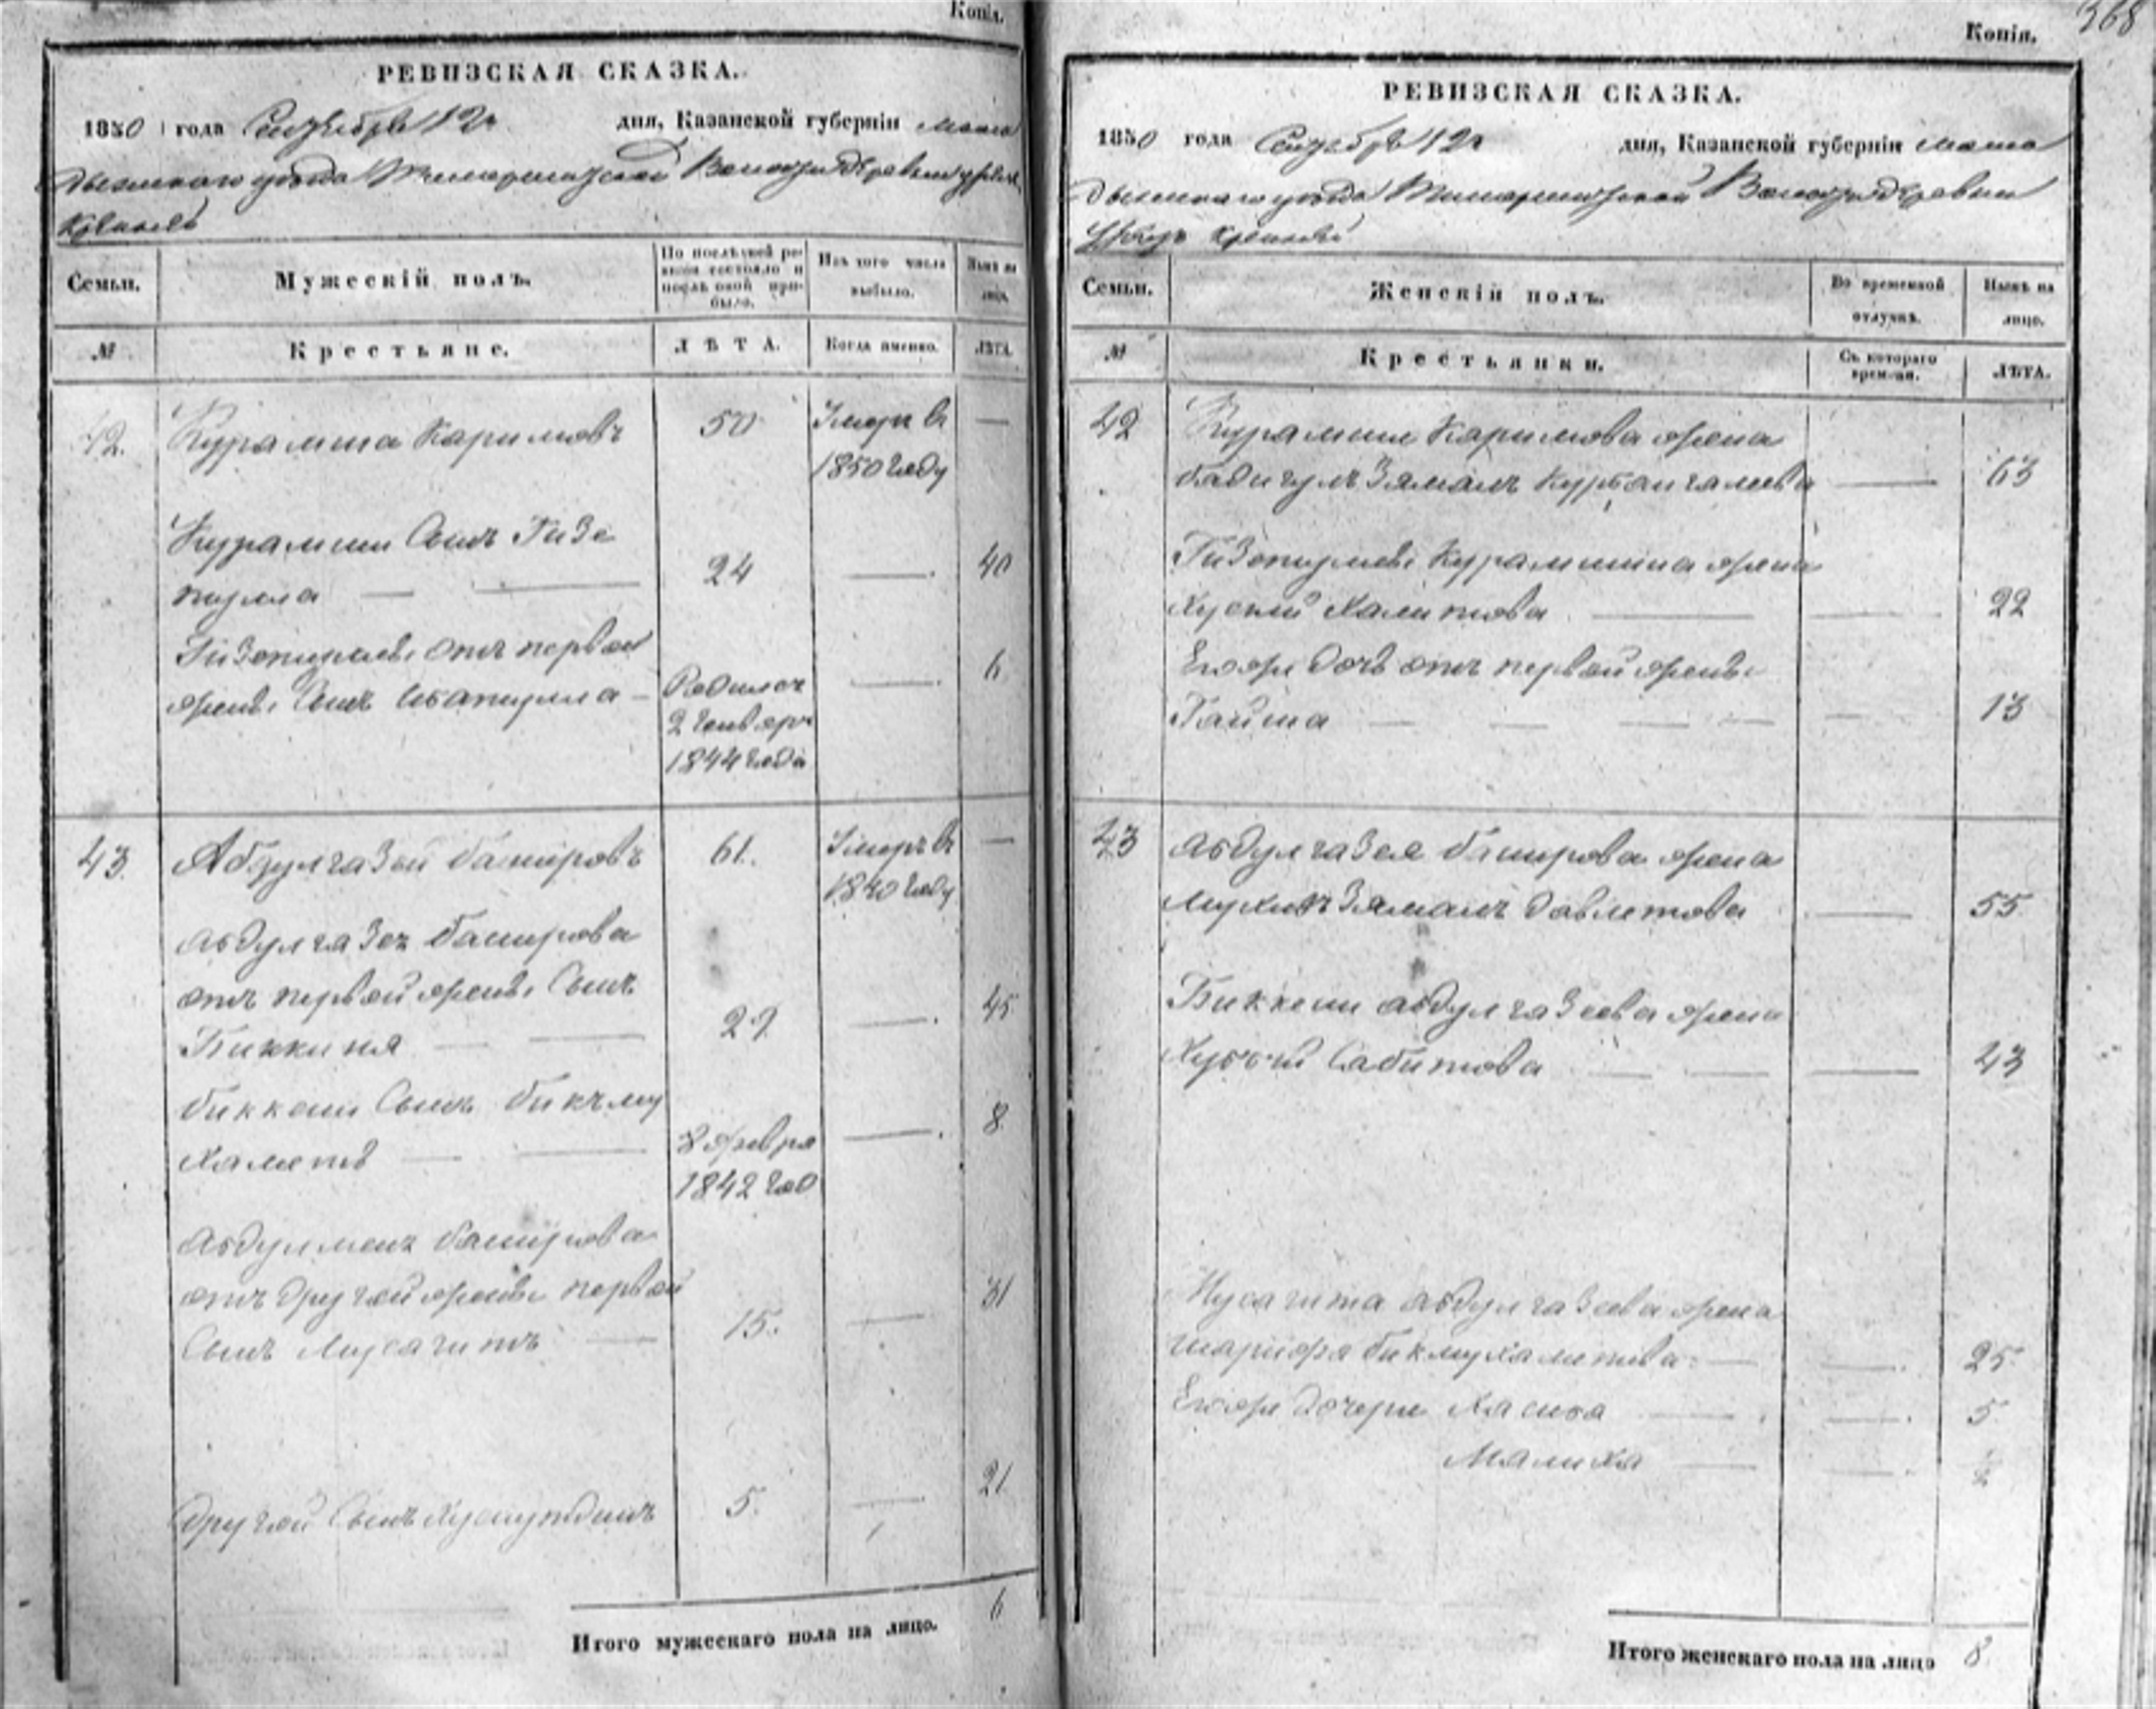 Копія.
РЕВИЗСКАЯ СКАЗКА.
1850 года Сентября 12 дня, Казанской губерніи Мама
дышскаго уѣзда Волости деревни
Семьи.
Мужескій полъ.
По послѣдней ре-
визіи состояло и
послѣ оной при-
было.
Изъ того числа
выбыло.
Нынѣ на
лицо.
№
Крестьяне.
ЛѢТА.
Когда именно.
ЛѢТА.
42. Курамша Каримовъ 50 Умеръ въ —
1850 году
Курамши Сынъ Гизе
пулла 24 — 40
от первой
жены Сынъ Ибатулла — Родился — 6
2 Генваря
1844 года
43. Абдулгазей Башировъ 61. Умеръ въ —
1840 году
Абдулгазея Баширова
отъ первой жены Сынъ
Биккиня 29 — 45
Биккени Сынъ Бикъму
хаметъ 8 Февра — 8
1842 год
Баширова
отъ другой жены первой
Сынъ Мусагитъ 15. — 31
другой Сынъ 5. — 21
Итого мужескаго пола на лицо. 6
Копія.
368
РЕВИЗСКАЯ СКАЗКА.
1850 года Сентября 12 дня, Казанской губерніи Мама
дышскаго уѣзда Волости деревни
Семьи.
Женскій полъ.
Во временной
отлучкѣ.
Нынѣ на
лицо.
№
Крестьянки.
Съ котораго
времени.
ЛѢТА.
42 Курамши Каримова жена
Бадигулъ Зямалъ Курбангалеева — 63
Курамшина жена
Халитова — 22
Егожъ дочь отъ первой жены
Гайша — 13
43 Абдулгазея Баширова жена
Зямалъ Давлетова — 55
Биккени Абдулгазеева жена
Сабитова — 43
Мусагита Абдулгазеева жена
Шарифа Бикмухаметева — 25
Егожъ дочери — 5
Малиха —
Итого женскаго пола на лицо 8